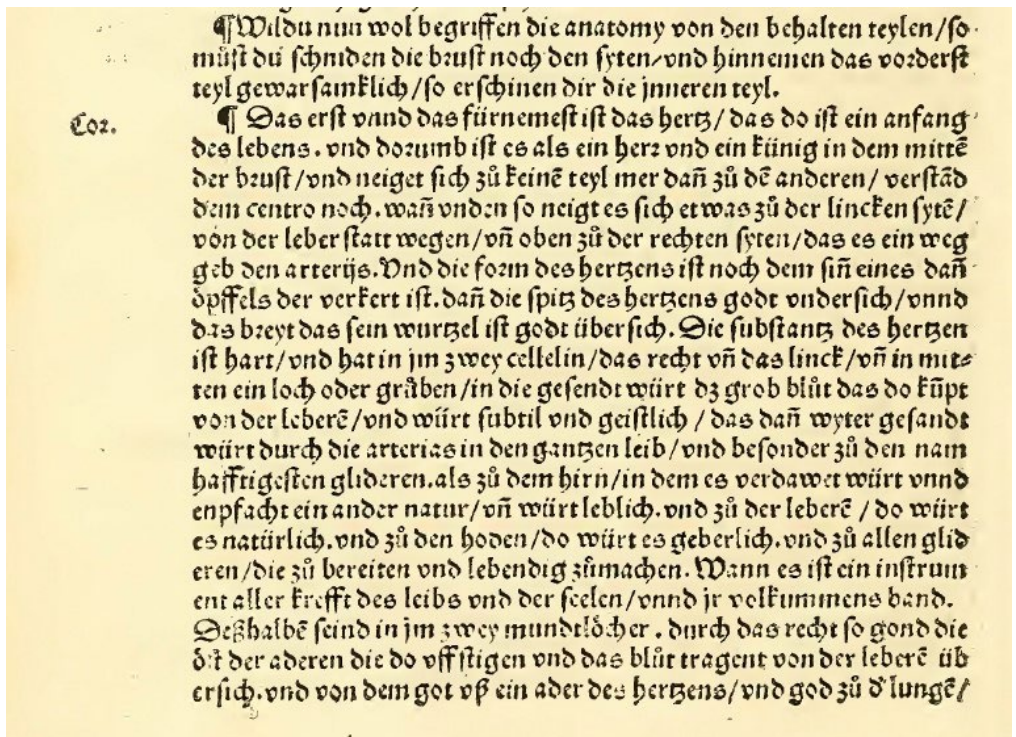 ¶Wildu nun wol begriffen die anatomy von den behalten teylen/so
můst du schniden die brust noch den syten/vnd hinnemen das vorderst
teyl gewarsamklich/so erschinen dir die jnneren teyl.
Cor.
¶ Das erst vnnd das fürnemest ist das hertz/ das do ist ein anfang
des lebens. vnd dorumb ist es als ein herr vnd ein künig in dem mittẽ
der brust/vnd neiget sich zů keinẽ teyl mer dañ zů dẽ anderen/ verstãd
dem centro noch. wañ vnden so neigt es sich etwas zů der lincken sytẽ/
von der leber statt wegen/vñ oben zů der rechten syten/das es ein weg
geb den arterijs. Vnd die form des hertzens ist noch dem siñ eines dañ
öpffels der verkert ist. dañ die spitz des hertzens godt vndersich/vnnd
das breyt das sein wurtzel ist godt übersich. Die substantz des hertzen
ist hart/vnd hat in jm zwey cellelin/das recht vñ das linck/vñ in mit⸗
ten ein loch oder gräben/in die gesendt würt dz grob blůt das do kũpt
von der leberẽ/vnd würt subtil vnd geistlich / das dañ wyter gesandt
würt durch die arterias in den gantzen leib/vnd besonder zů den nam
hafftigesten glideren. als zů dem hirn/in dem es verdawet würt vnnd
enpfacht ein ander natur/vñ würt leblich. vnd zů der leberẽ / do würt
es natürlich. vnd zů den hoden/do würt es geberlich. vnd zů allen glid
eren/die zů bereiten vnd lebendig zůmachen. Wann es ist ein instrum
ent aller krefft des leibs vnd der seelen/vnnd jr volkummens band.
Deßhalbẽ seind in jm zwey mundtlöcher. durch das recht so gond die
öst der aderen die do vff stigen vnd das blůt tragent von der leberẽ üb
ersich. vnd von dem got vß ein ader des hertzens/vnd god zů d' lungẽ/